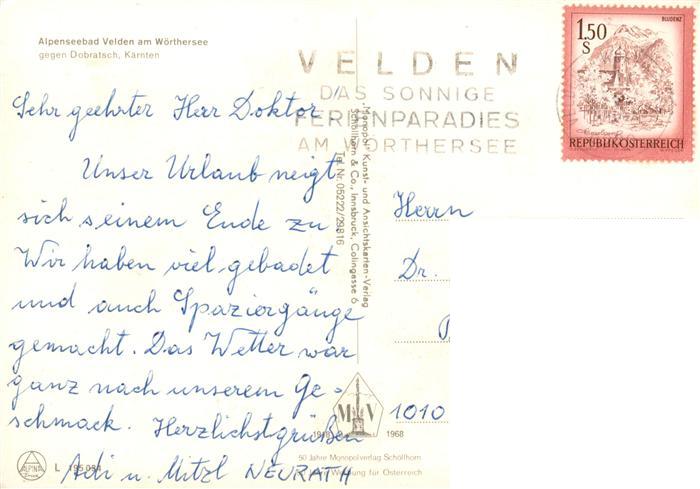 Alpenseebad Velden am Wörthersee
gegen Dobratsch, Kärnten
VELDEN
DAS SONNIGE
FERIENPARADIES
AM WÖRTHERSEE
1.50
S
BLUDENZ
REPUBLIK ÖSTERREICH
Sehr geehrter Herr Doktor
Unser Urlaub neigt
sich seinem Ende zu
Wir haben viel gebadet
und auch Spaziergänge
gemacht. Das Wetter war
ganz nach unserem Ge-
schmack. Herzlichst grüßen
Adi u. Mitzl NEURATH
Monopol - Kunst- und Ansichtskarten-Verlag
Schöllhorn & Co., Innsbruck, Colingasse 6
Tel. Nr. 05222/29816
Herrn
Dr.
1010
M V
1918 1968
50 Jahre Monopolverlag Schöllhorn
50 Jahre Werbung für Österreich
ALPINA
L 195 081